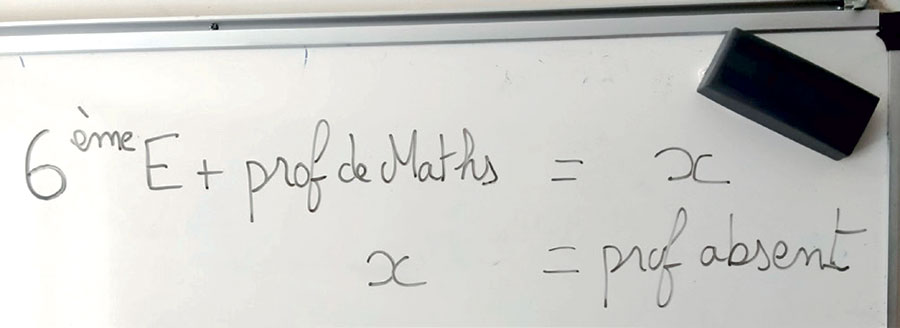 6ème E + prof de Maths = x
x = prof absent